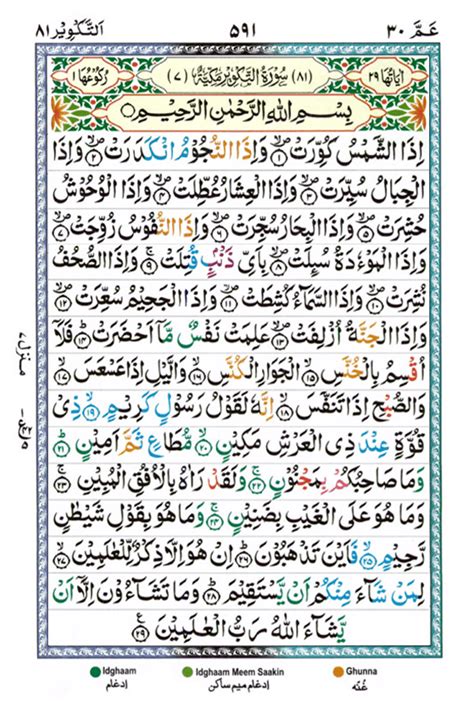 عَمَّ ٣٠
٥٩١
اَلتَّكْوِيْر ٨١
اٰيَاتُهَا ٢٩ (٨١) سُوْرَةُ التَّكْوِيْرِ مَكِّيَّةٌ (٧) رُكُوْعُهَا
بِسْمِ اللّٰهِ الرَّحْمٰنِ الرَّحِيْمِ
اِذَا الشَّمْسُ كُوِّرَتْ ۝١ وَاِذَا النُّجُوْمُ انْكَدَرَتْ ۝٢ وَاِذَا
الْجِبَالُ سُيِّرَتْ ۝٣ وَاِذَا الْعِشَارُ عُطِّلَتْ ۝٤ وَاِذَا الْوُحُوْشُ
حُشِرَتْ ۝٥ وَاِذَا الْبِحَارُ سُجِّرَتْ ۝٦ وَاِذَا النُّفُوْسُ زُوِّجَتْ ۝٧
وَاِذَا الْمَوْءٗدَةُ سُئِلَتْ ۝٨ بِاَيِّ ذَنْۢبٍ قُتِلَتْ ۝٩ وَاِذَا الصُّحُفُ
نُشِرَتْ ۝١٠ وَاِذَا السَّمَآءُ كُشِطَتْ ۝١١ وَاِذَا الْجَحِيْمُ سُعِّرَتْ ۝١٢
وَاِذَا الْجَنَّةُ اُزْلِفَتْ ۝١٣ عَلِمَتْ نَفْسٌ مَّآ اَحْضَرَتْ ۝١٤ فَلَآ
اُقْسِمُ بِالْخُنَّسِ ۝١٥ الْجَوَارِ الْكُنَّسِ ۝١٦ وَالَّيْلِ اِذَا عَسْعَسَ ۝١٧
وَالصُّبْحِ اِذَا تَنَفَّسَ ۝١٨ اِنَّهٗ لَقَوْلُ رَسُوْلٍ كَرِيْمٍ ۝١٩ ذِيْ
قُوَّةٍ عِنْدَ ذِي الْعَرْشِ مَكِيْنٍ ۝٢٠ مُّطَاعٍ ثَمَّ اَمِيْنٍ ۝٢١
وَمَا صَاحِبُكُمْ بِمَجْنُوْنٍ ۝٢٢ وَلَقَدْ رَاٰهُ بِالْاُفُقِ الْمُبِيْنِ ۝٢٣
وَمَا هُوَ عَلَى الْغَيْبِ بِضَنِيْنٍ ۝٢٤ وَمَا هُوَ بِقَوْلِ شَيْطٰنٍ
رَّجِيْمٍ ۝٢٥ فَاَيْنَ تَذْهَبُوْنَ ۝٢٦ اِنْ هُوَ اِلَّا ذِكْرٌ لِّلْعٰلَمِيْنَ ۝٢٧
لِمَنْ شَآءَ مِنْكُمْ اَنْ يَّسْتَقِيْمَ ۝٢٨ وَمَا تَشَآءُوْنَ اِلَّآ اَنْ
يَّشَآءَ اللّٰهُ رَبُّ الْعٰلَمِيْنَ ۝٢٩
منزل ٧
Idghaam
ادغام
Idghaam Meem Saakin
ادغام میم ساکن
Ghunna
غُنّه